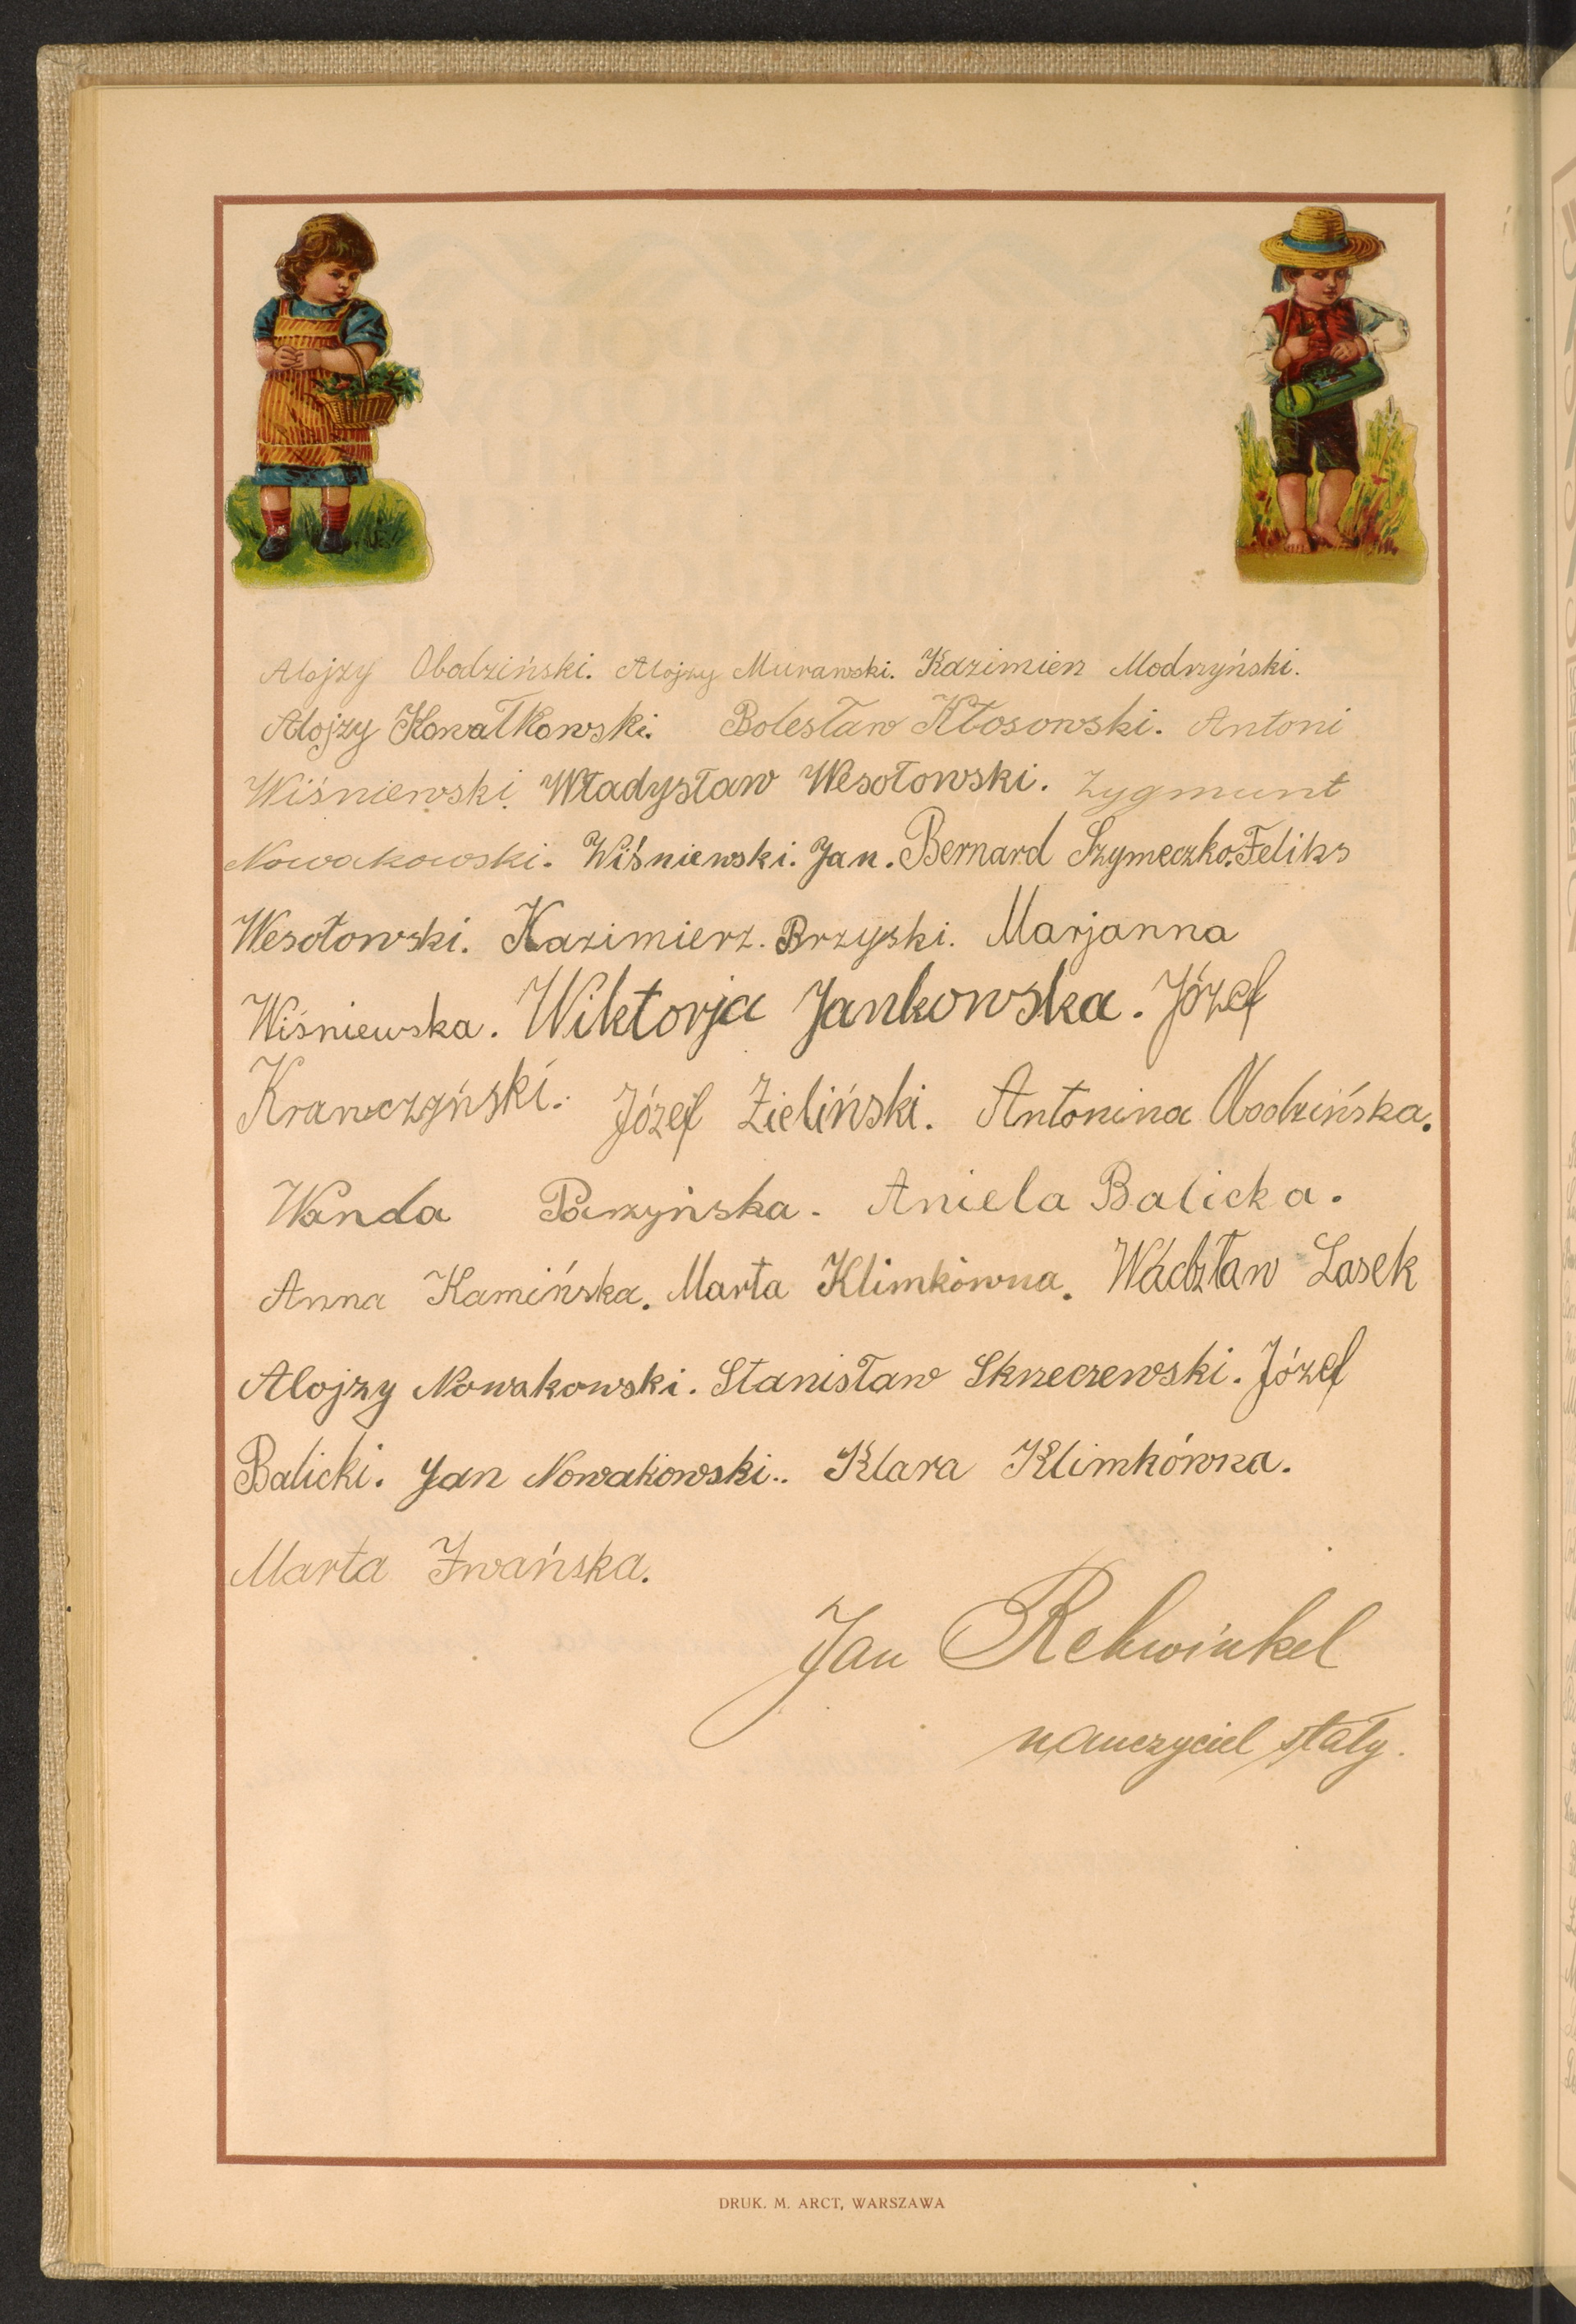 Alojzy Obodziński. Alojzy Murawski. Kazimierz Modrzyński.
Alojzy Kowalkowski. Bolesław Kłosowski. Antoni
Wiśniewski. Władysław Wesołowski. Zygmunt
Nowakowski. Wiśniewski. Jan. Bernard Szymeczko. Feliks
Wesołowski. Kazimierz. Brzyski. Marjanna
Wiśniewska. Wiktorja Jankowska. Józef
Krawczyński. Józef Zieliński. Antonina Obodzińska.
Wanda Aniela Balicka.
Anna Kamińska. Marta Klimkówna. Lasek
Alojzy Nowakowski. Stanisław Skrzeczewski. Józef
Balicki. Jan Nowakowski.. Klara Klimkówna.
Marta Iwańska.
Jan Rehwinkel
nauczyciel stały.
DRUK. M. ARCT, WARSZAWA